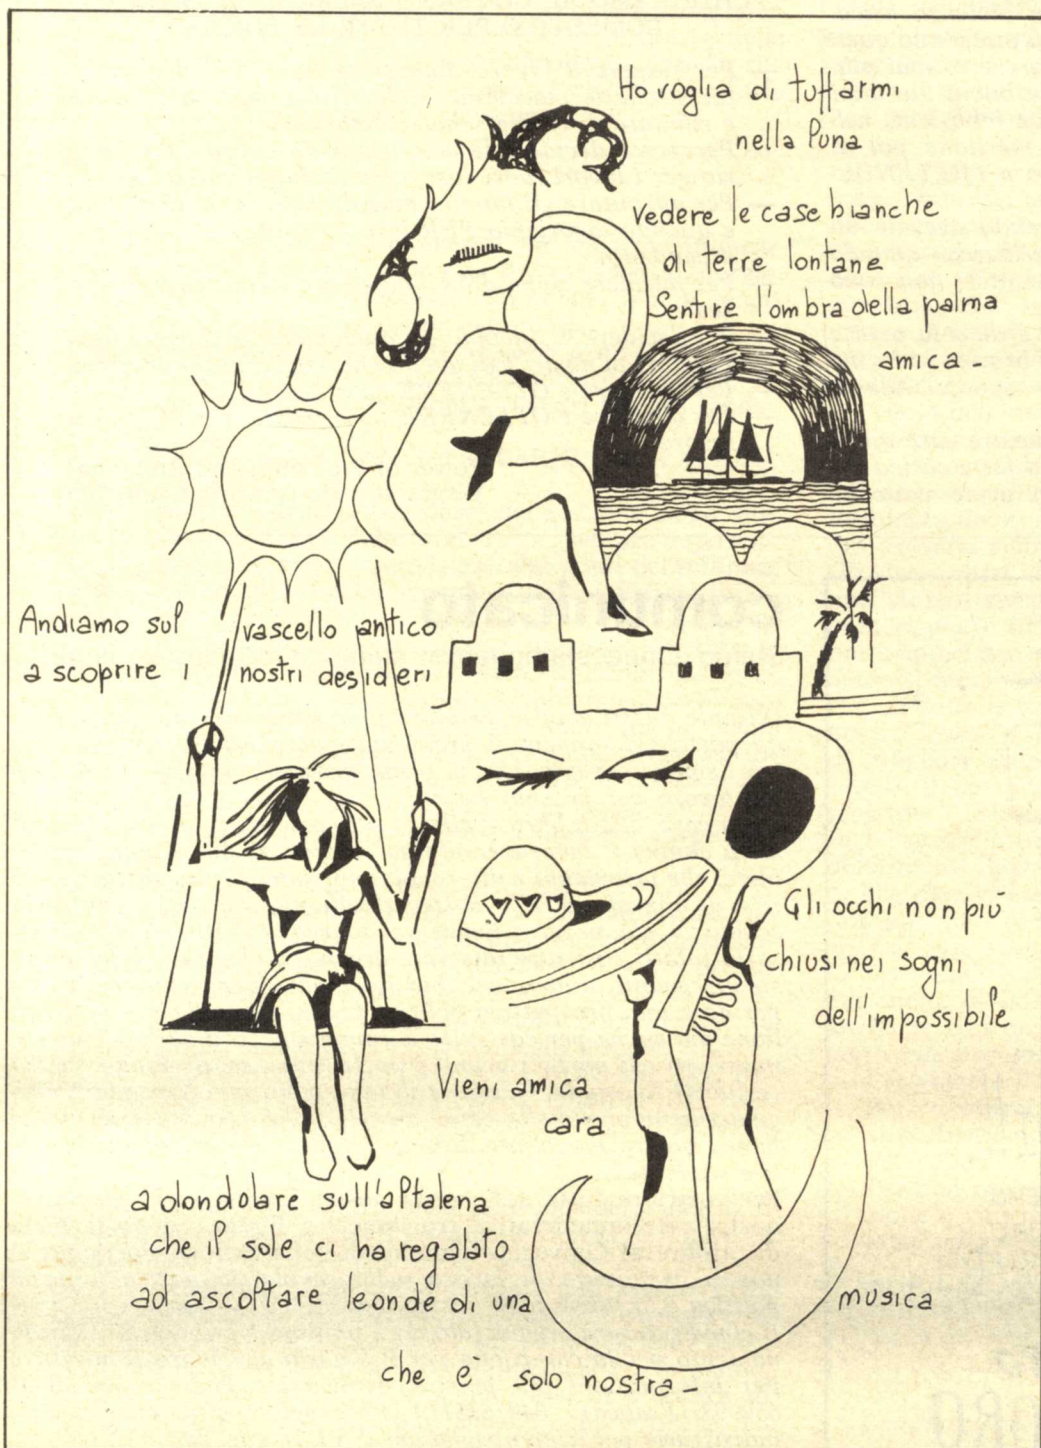 Ho voglia di tuffarmi
nella Puna
vedere le case bianche
di terre lontane
Sentire l'ombra della palma
amica -
Andiamo sul vascello antico
a scoprire i nostri desideri
Gli occhi non più
chiusi nei sogni
dell'impossibile
Vieni amica
cara
a dondolare sull'altalena
che il sole ci ha regalato
ad ascoltare le onde di una musica
che è solo nostra -